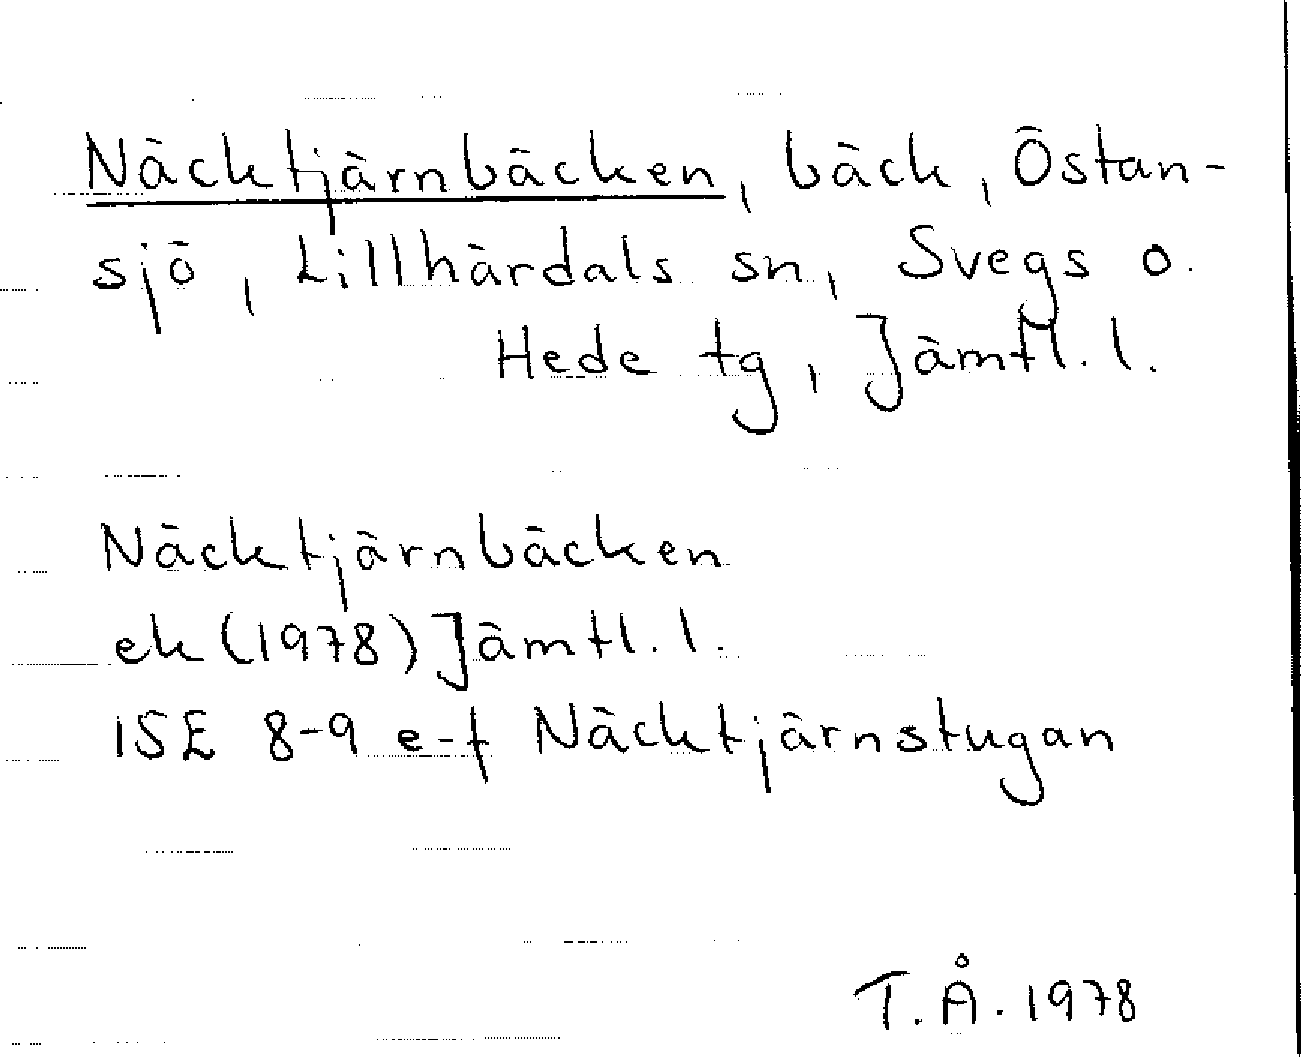 Näcktjärnbäcken, bäck, Östan-
sjö, Lillhärdals sn, Svegs o.
Hede tg, Jämtl. l.
Näcktjärnbäcken
ek (1978) Jämtl. l.
15E 8-9 e-f Näcktjärnstugan
T.Å. 1978